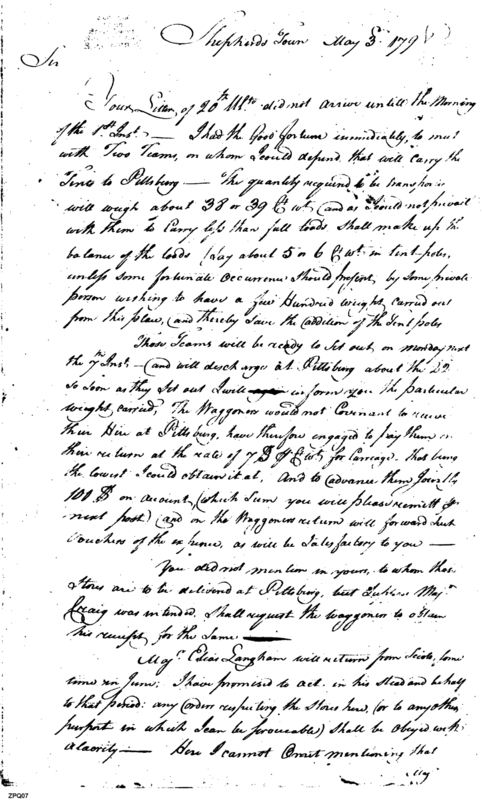 Shepherds Town May 3d. 179
Sir
Your Letter of 20th Ulto. did not arrive untill the Morning
of the 1st Inst. — I had the Good fortune immidiately, to meet
with Two Teams, on whom I could depend, that will carry the
Tents to Pittsburg — The quantity required to be transported
will weigh about 38 or 39 Ct wt. (and as I could not prevail
with them to Carry less than full loads Shall make up the
balance of the loads (say about 5 or 6 Ct wt. in tent-poles,
unless some fortunate Occurrence Should present, by some private
person wishing to have a few Hundred weight, carried out
from this place, and thereby Save the addition of the Tent poles
Those Teams will be ready to Set out on monday next
the 7th Inst. — (and will discharge at Pittsburg about the 22
So Soon as they Set out I will inform you the particular
weight carried, The Waggoners would not Covenant to receive
their Hire at Pittsburg, have therefore engaged to pay them on
their return at the rate of 7 D. Ct wt. for Carriage. that being
the lowest I could obtain it at. And to (advance them Jointly
100 Ds on account, (which Sum you will please remitt
next post) (and on the Waggoners return will forward Such
Vouchers of the expence, as will be Satisfactory to you —
You did not mention in yours, to whom those
Stores are to be delivered at Pittsburg, but Majr.
Craig was intended. Shall request the waggoner to obtain
his receipt, for the Same —
Majr. Elias Langham will return from Scioto, some
time in June; I have promised to act in his Stead and behalf
to that period: any (orders respecting the Stores here, (or to any other
purport in which I can be Serviceable) Shall be Obeyed with
alacrity — Here I cannot Omit mentioning that
May
ZPQ07